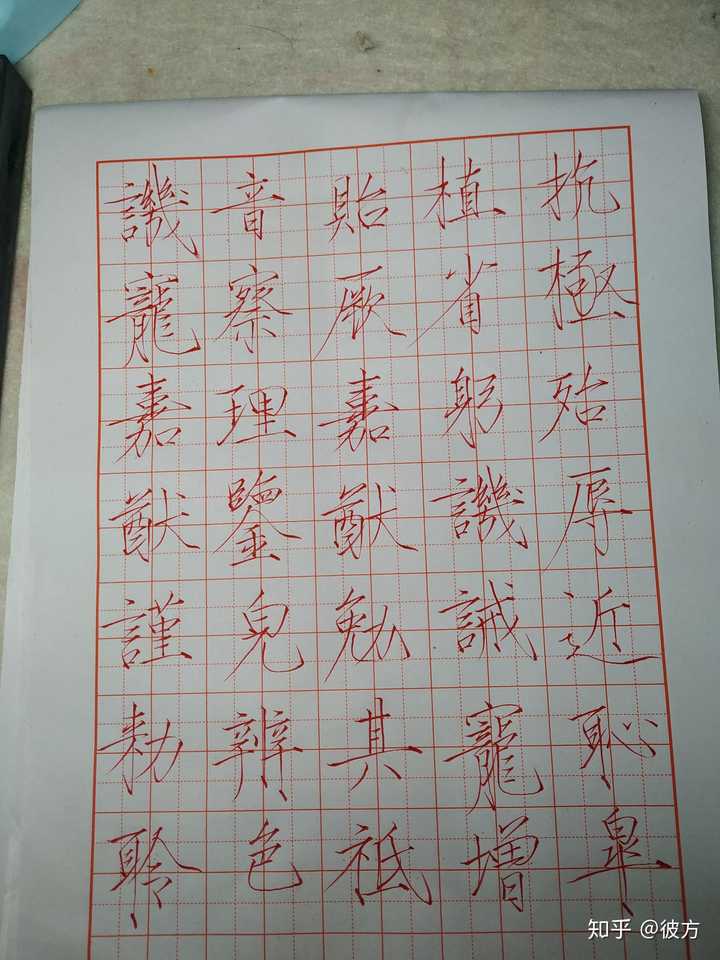 譏寵嘉猷謹勅聆
音察理鑒皃辨色
貽厥嘉猷勉其祗
植省躬譏誡寵增
抗極殆辱近恥皐
知乎 @彼方